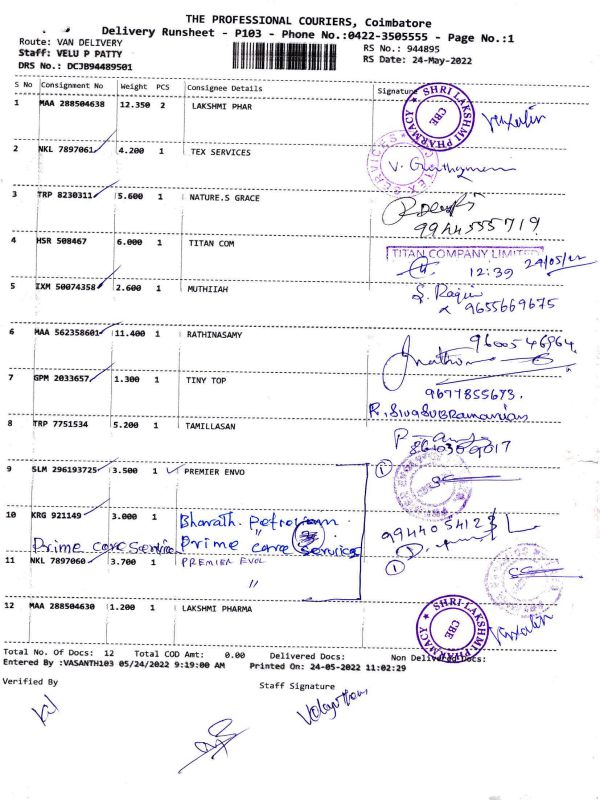 THE PROFESSIONAL COURIERS, Coimbatore
Delivery Runsheet - P103 - Phone No.:0422-3505555 - Page No.:1
Route: VAN DELIVERY
RS No.: 944895
Staff: VELU P PATTY
RS Date: 24-May-2022
DRS No.: DCJB94489501
S No Consignment No Weight PCS Consignee Details Signature
1 MAA 288504638 12.350 2 LAKSHMI PHAR
SHRI LAKSHMI PHARMACY CBE
2 NKL 7897061 4.200 1 TEX SERVICES
3 TRP 8230311 5.600 1 NATURE.S GRACE
9944555719
4 HSR 508467 6.000 1 TITAN COM
TITAN COMPANY LIMITED
12:39 24/05/22
5 IXM 50074358 2.600 1 MUTHIIAH
9655669675
6 MAA 562358601 11.400 1 RATHINASAMY
9600546964
7 GPM 2033657 1.300 1 TINY TOP
9677855673.
R. SIVASUBRamanian
8 TRP 7751534 5.200 1 TAMILLASAN
9 SLM 296193725 3.500 1 PREMIER ENVO
1
10 KRG 921149 3.000 1 Bharath Petroleum
Prime care service Prime care service
11 NKL 7897060 3.700 1 PREMIER EVOL
1
"
12 MAA 288504630 1.200 1 LAKSHMI PHARMA
SHRI LAKSHMI PHARMACY CBE
Total No. Of Docs: 12 Total COD Amt: 0.00 Delivered Docs: Non Delivered Docs:
Entered By :VASANTH103 05/24/2022 9:19:00 AM Printed On: 24-05-2022 11:02:29
Verified By Staff Signature